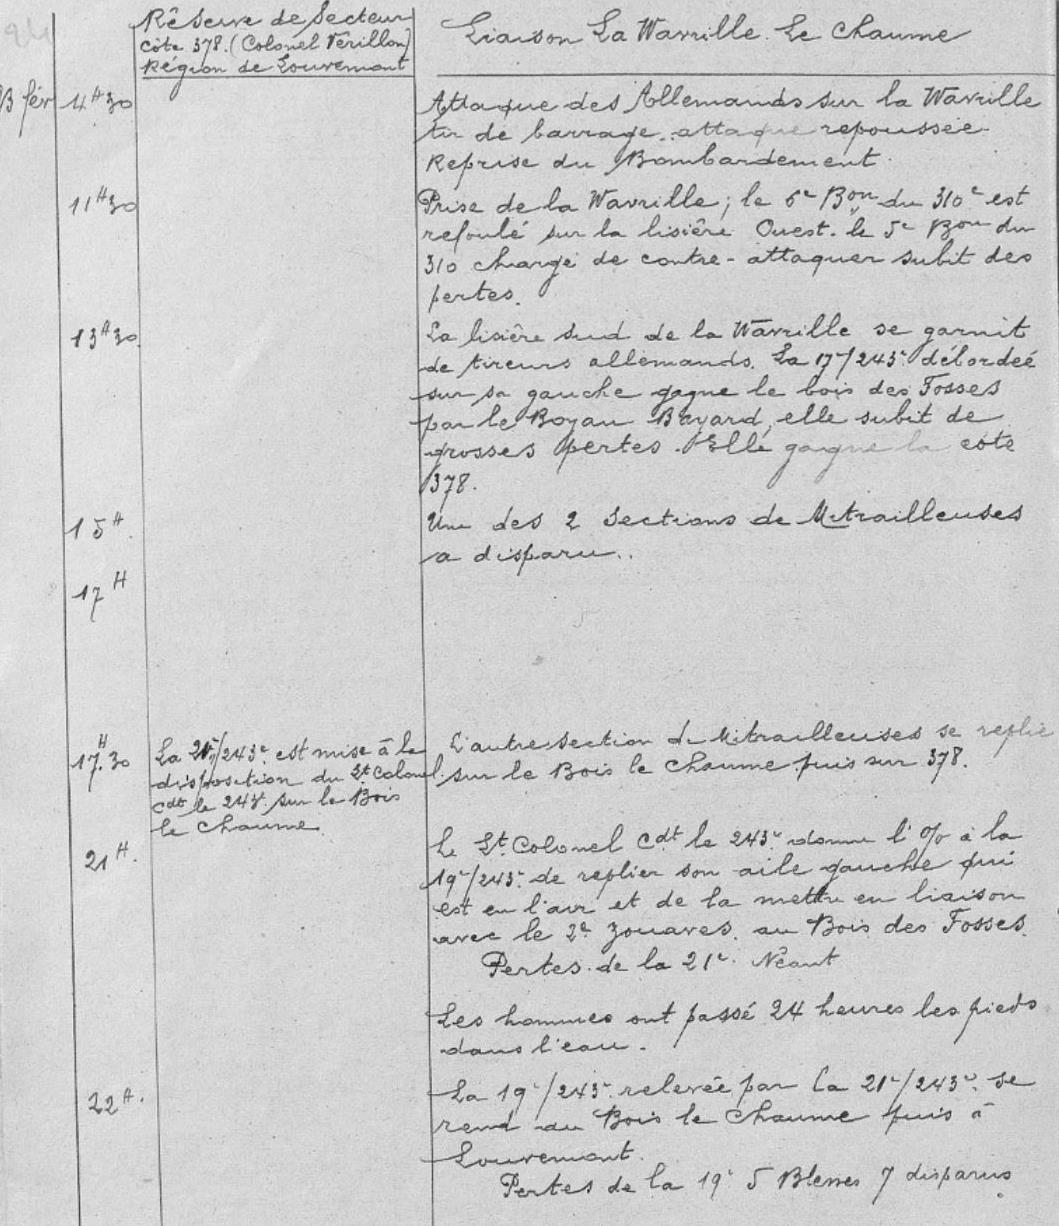 Réserve de Secteur
côte 378. (Colonel Vérillon)
Région de Louvemont
Liaison La Wavrille. Le Chaume
fév 4H30
Attaque des Allemands sur la Wavrille
tir de barrage. attaque repoussée.
Reprise du Bombardement.
11H30
Prise de la Wavrille; le 6e Bon du 310e est
refoulé sur la lisière Ouest. le 5e Bon du
310 chargé de contre-attaquer subit des
pertes.
13H30.
La lisière sud de la Wavrille se garnit
de tireurs allemands. La 17e/243e débordeé
sur sa gauche gagne le bois des Fosses
par le Boyau Bayard, elle subit de
grosses pertes. Elle gagne la cote
378.
15H.
Une des 2 Sections de Mitrailleuses
a disparu..
17H
17H.30
La 21e/243e est mise à la
disposition du Lt Colonel
cdt le 243e sur le Bois
le Chaume.
L'autre section de Mitrailleuses se replie
sur le Bois le Chaume puis sur 378.
21H.
Le Lt. Colonel Cdt le 243e donne l'O/O à la
19e/243e de replier son aile gauche qui
est en l'air et de la mettre en liaison
avec le 2e Zouaves. au Bois des Fosses.
Pertes de la 21e. Néant
Les hommes ont passé 24 heures les pieds
dans l'eau.
22H.
La 19e/243e relevée par la 21e/243e. se
rend au Bois le Chaume puis à
Louvemont.
Pertes de la 19e 5 Blessés 7 disparus.